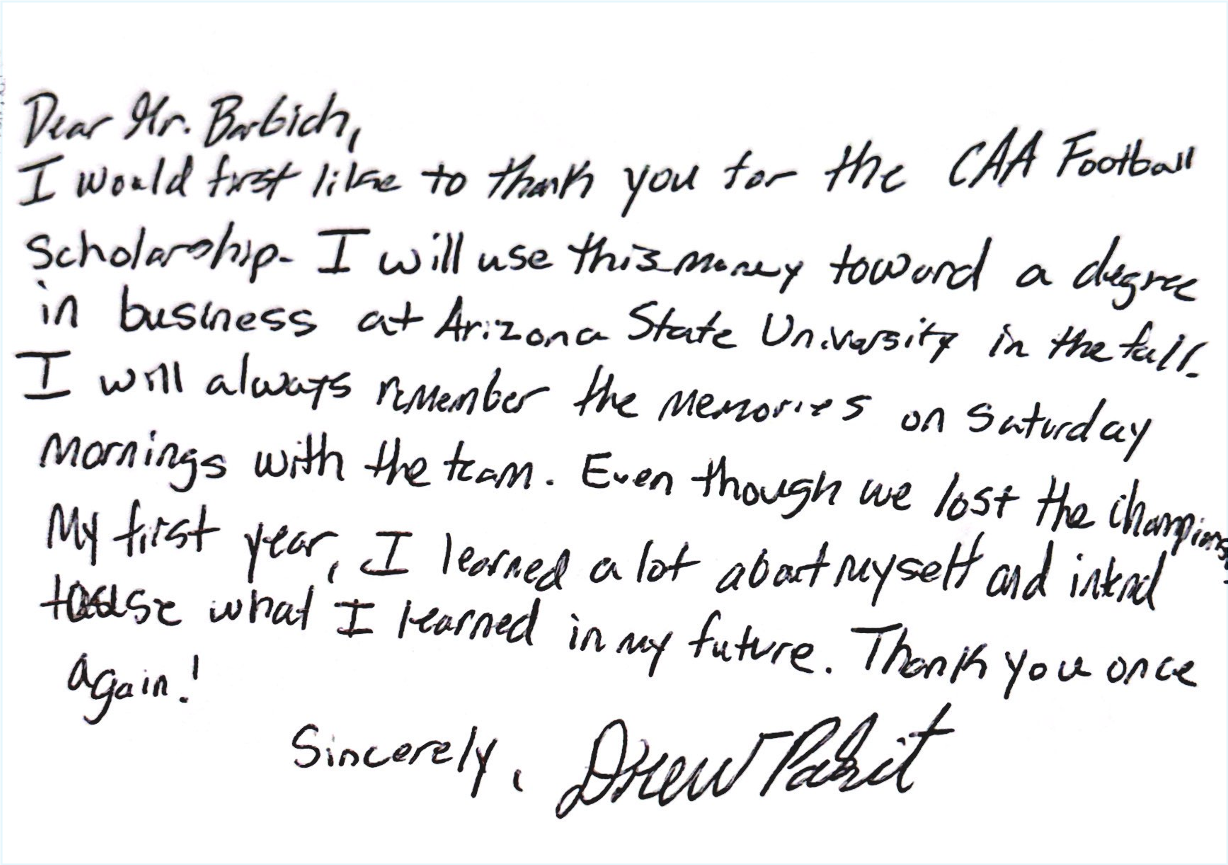 Dear Mr. Barbich,
I would first like to thank you for the CAA Football
Scholarship. I will use this money toward a degree
in business at Arizona State University in the fall.
I will always remember the memories on Saturday
mornings with the team. Even though we lost the
My first year, I learned a lot about myself and intend
to use what I learned in my future. Thank you once
again!
Sincerely, Drew